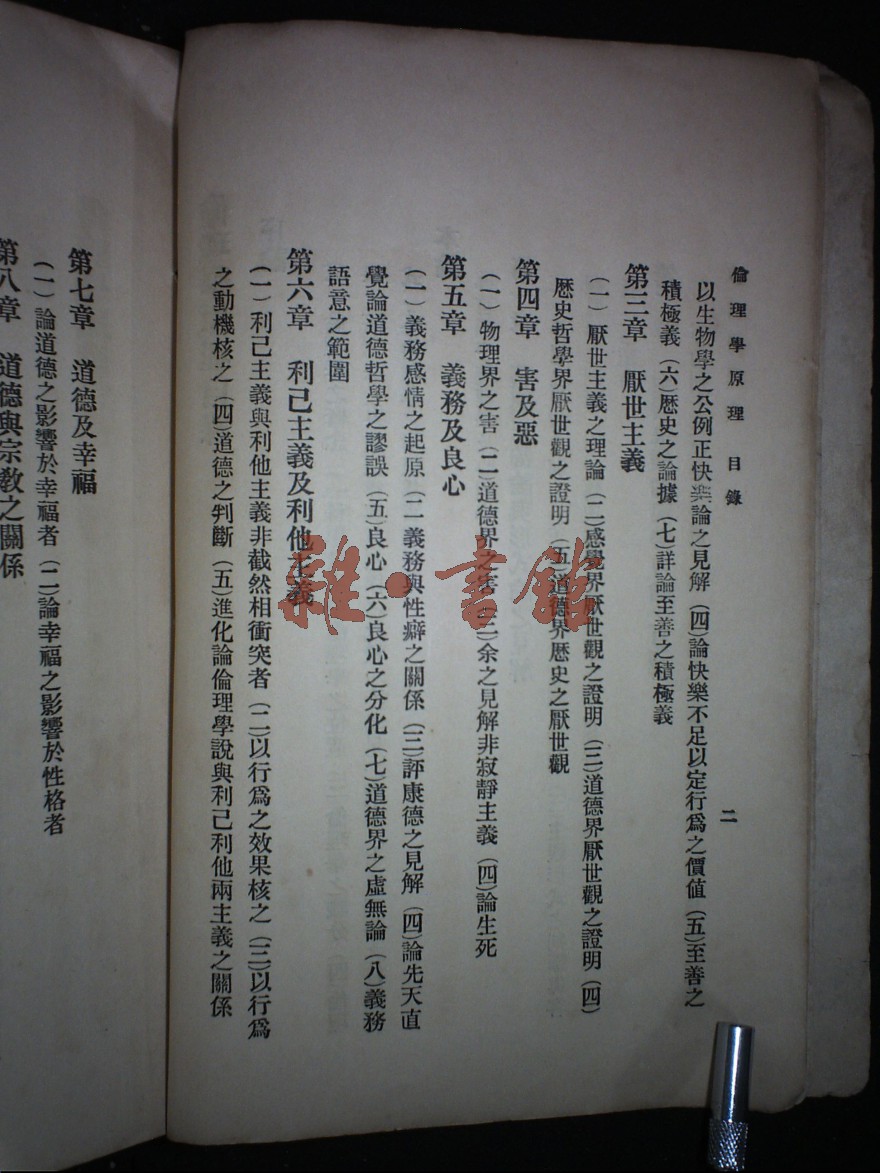 倫理學原理 目錄
二
以生物學之公例正快樂論之見解(四)論快樂不足以定行爲之價値(五)至善之
積極義(六)歷史之論據(七)詳論至善之積極義
第三章 厭世主義
(一)厭世主義之理論(二)感覺界厭世觀之證明(三)道德界厭世觀之證明(四)
歷史哲學界厭世觀之證明(五)道德界歷史之厭世觀
第四章 害及惡
(一)物理界之害(二)道德界之害(三)余之見解非寂靜主義(四)論生死
第五章 義務及良心
(一)義務感情之起原(二 義務與性癖之關係(三)評康德之見解(四)論先天直
覺論道德哲學之謬誤(五)良心(六)良心之分化(七)道德界之虛無論(八)義務
語意之範圍
第六章 利己主義及利他主義
(一)利己主義與利他主義非截然相衝突者(二)以行爲之效果核之(三)以行爲
之動機核之(四)道德之判斷(五)進化論倫理學說與利己利他兩主義之關係
第七章 道德及幸福
(一)論道德之影響於幸福者(二)論幸福之影響於性格者
第八章 道德與宗敎之關係
雜·書館